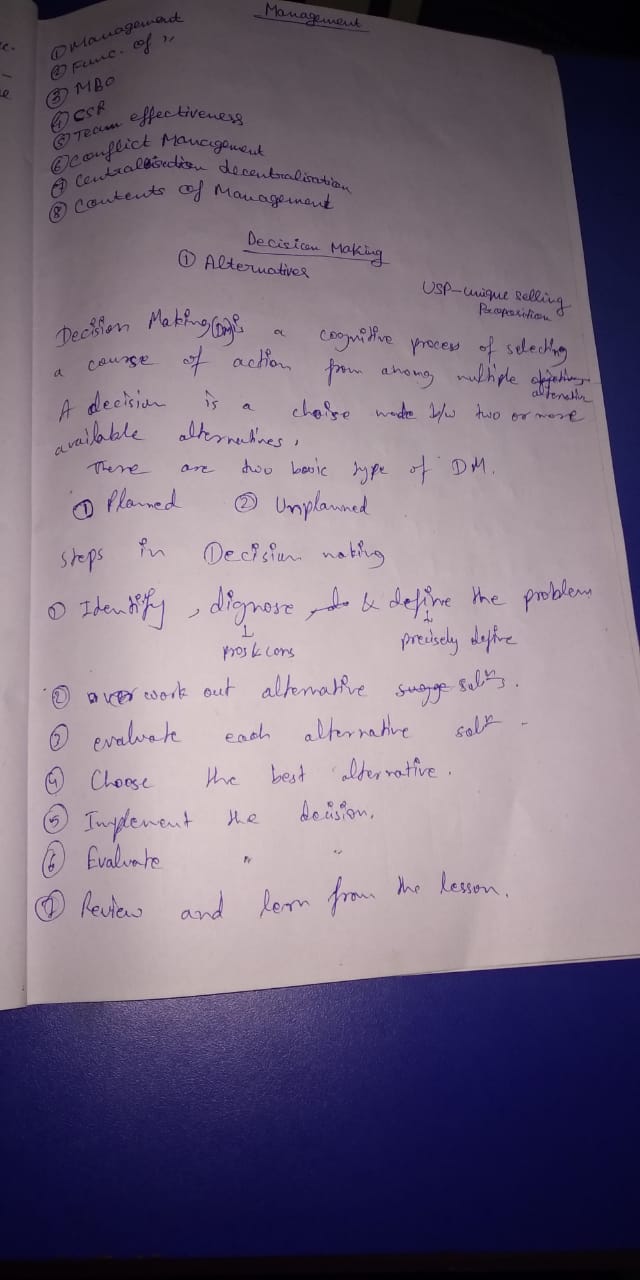 Management
① Management
② Func. of "
③ MBO
④ CSR
⑤ Team effectiveness
⑥ Conflict Management
⑦ Centralisation decentralisation
⑧ Contents of Management
Decision Making
① Alternatives
USP - unique selling
Proposition
Decision Making (DM) is a cognitive process of selecting
a course of action from among multiple objectives
alternative
A decision is a choise made b/w two or more
available alternatives,
There are two basic type of DM.
① Planned ② Unplanned
Steps in Decision making
① Identify, dignose & define the problem
↓ ↓
pros & cons precisely define
② work out alternative sugge solns.
③ evaluate each alternative soln -
④ Choose the best alternative.
⑤ Implement the decision.
⑥ Evaluate " "
⑦ Review and lern from the lesson.